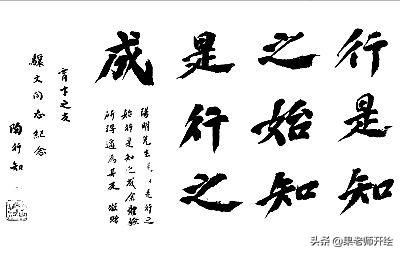 行是知
之始知
是行之
成
陽明先生知是行之
始行是知之成余體驗
所得適為其反 敬贈
育才之友
文同志紀念
陶行知
头条 @果老师开绘